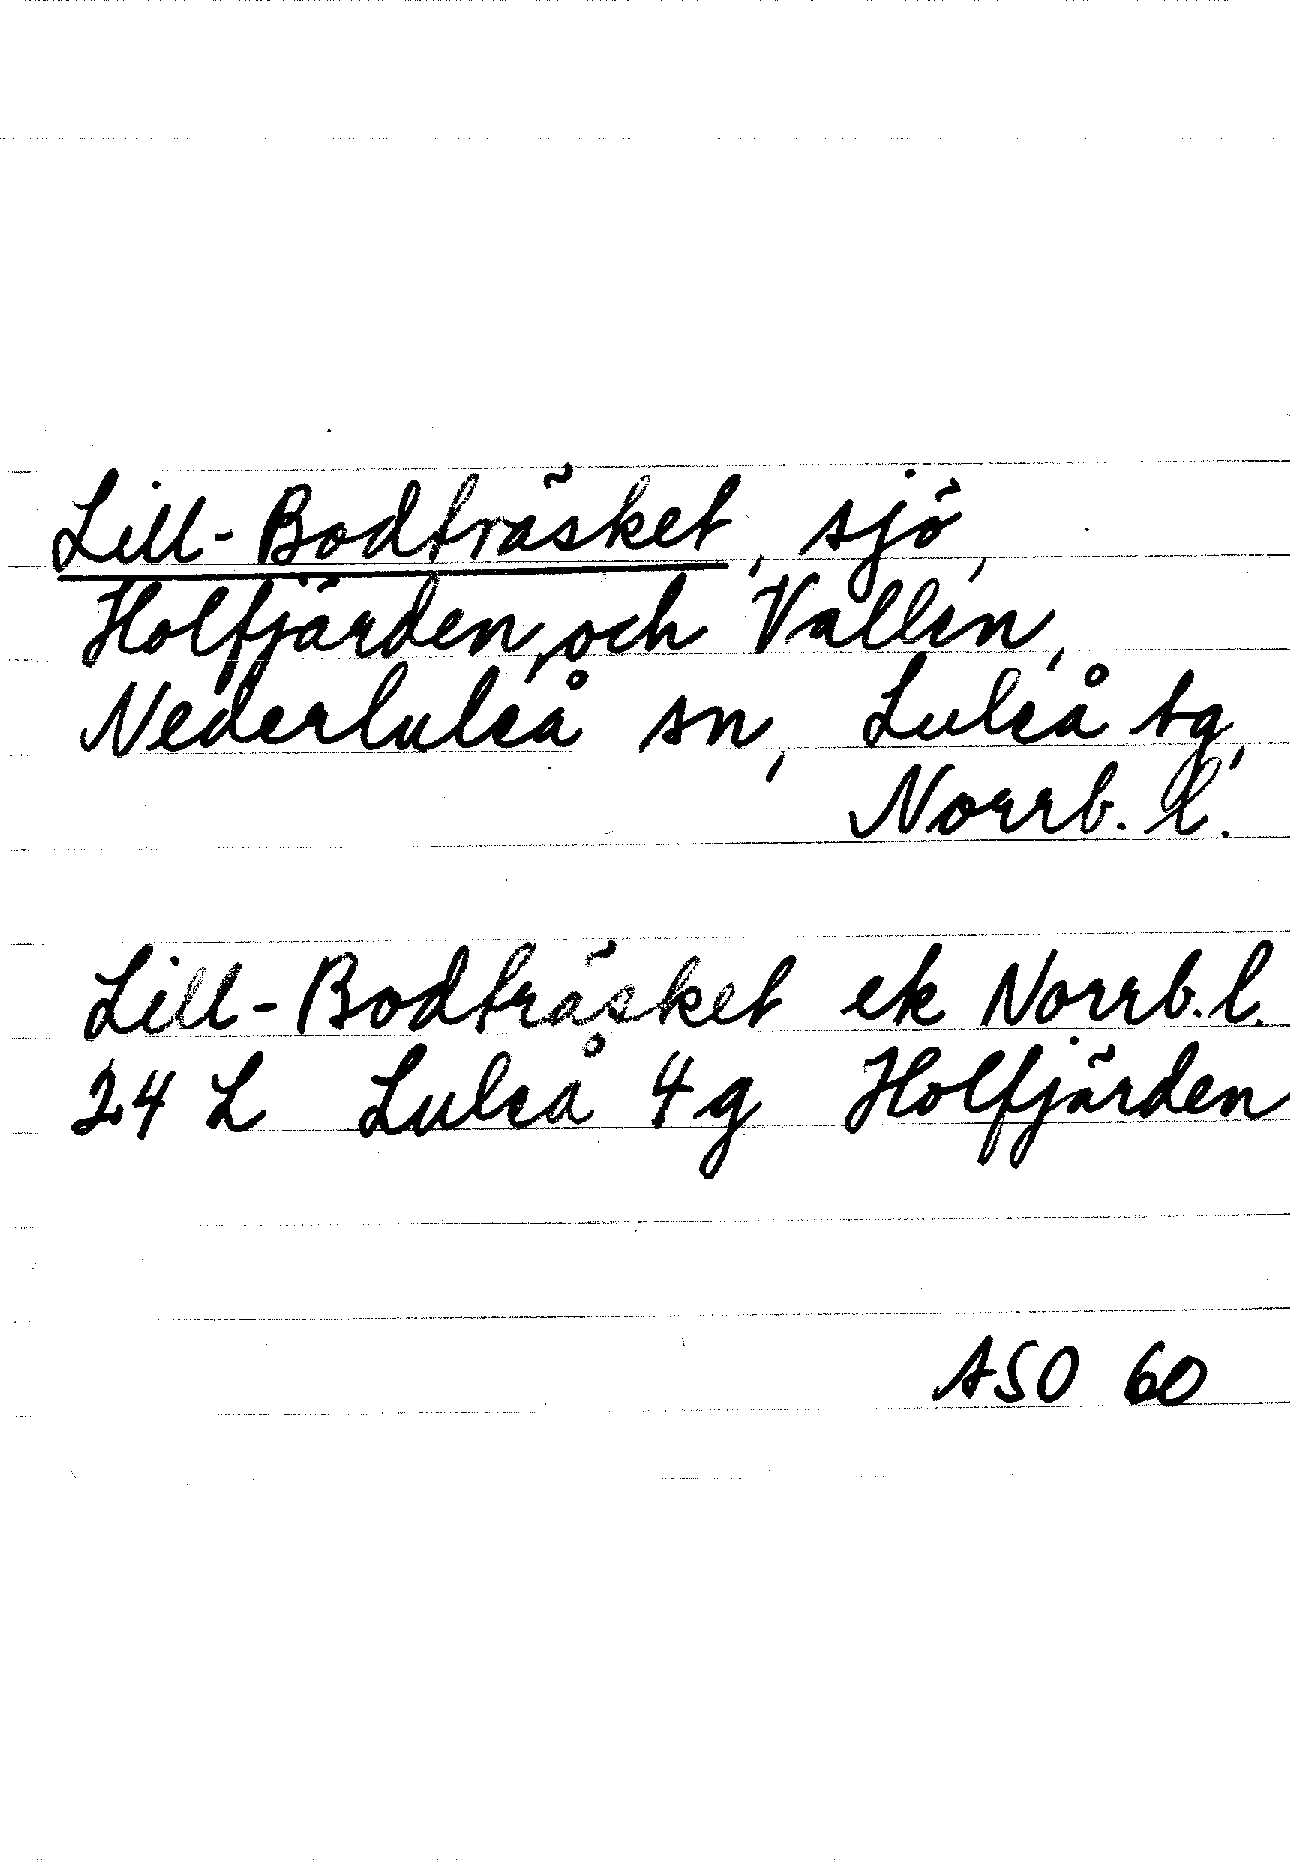 Lill-Bodträsket, sjö,
Holfjärden, och Vallen,
Nederluleå sn, Luleå tg,
Norrb. l.
Lill-Bodträsket ek Norrb. l.
24 L Luleå 4 g Holfjärden
ASO 60